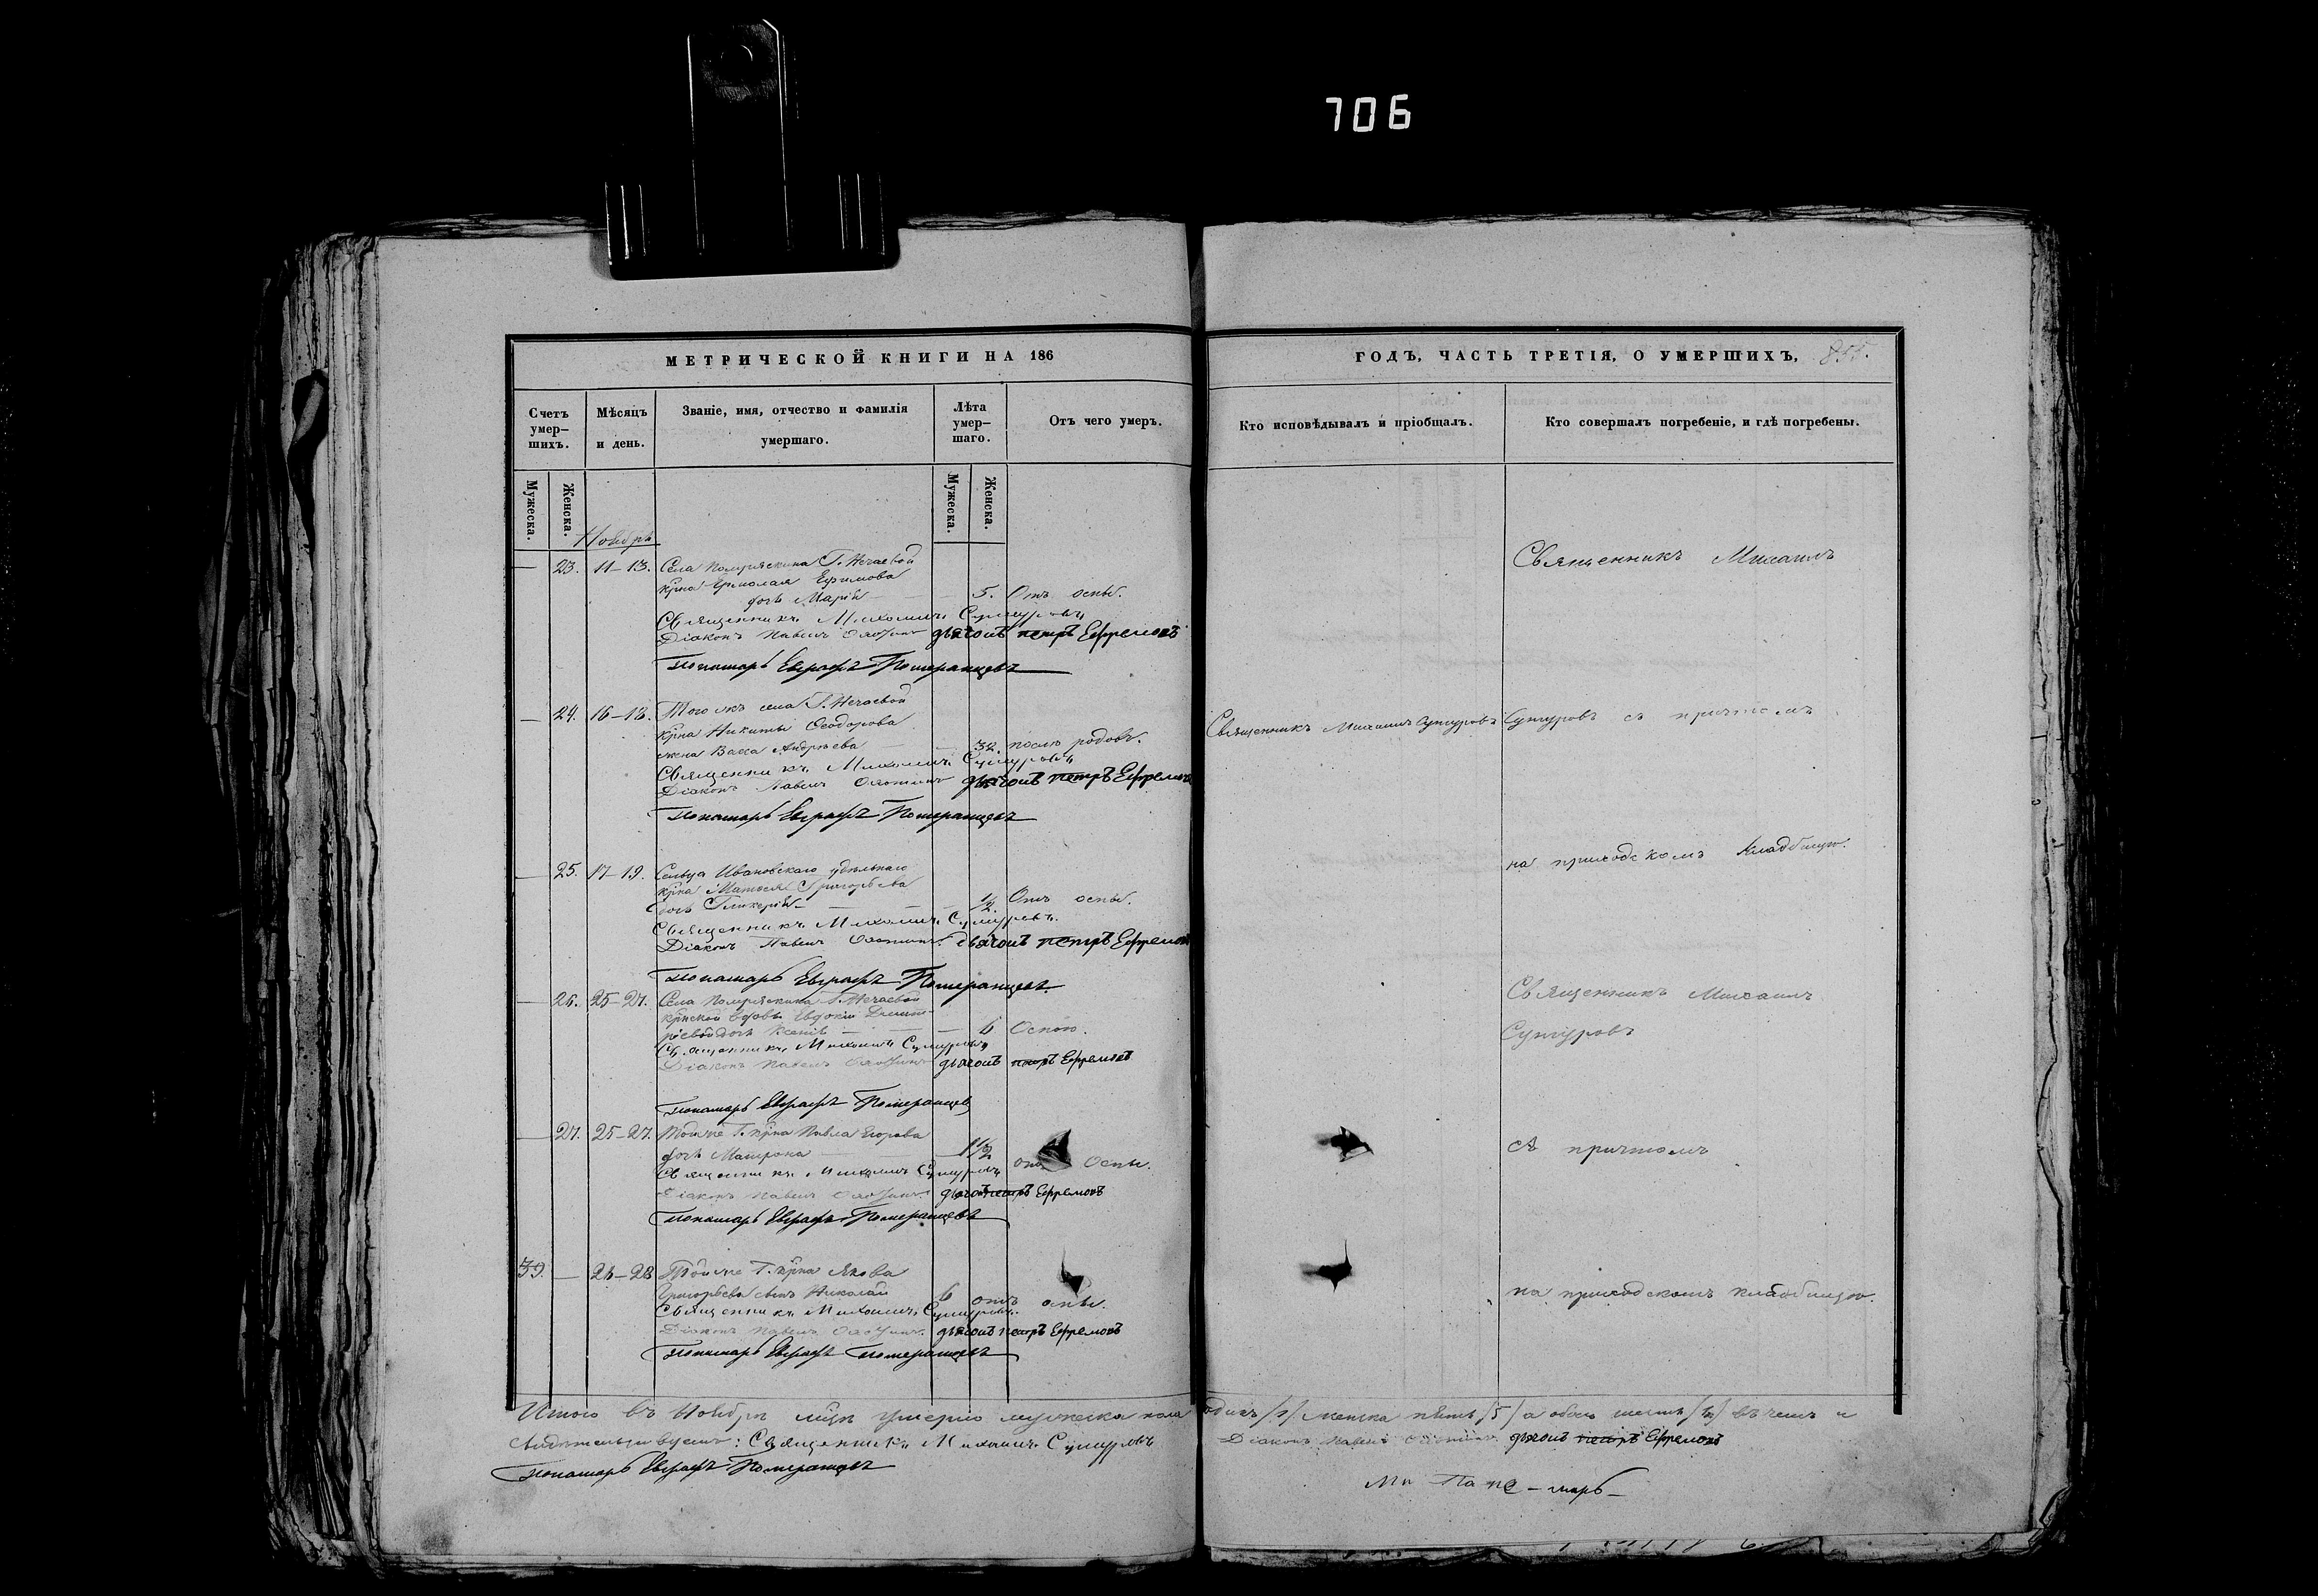 706
МЕТРИЧЕСКОЙ КНИГИ НА 186
ГОДЪ, ЧАСТЬ ТРЕТІЯ, О УМЕРШИХЪ, 855.
Счетъ умер–шихъ.
Мѣсяцъ и день.
Званіе, имя, отчество и фамилія умершаго.
Лѣта умер–шаго.
Отъ чего умеръ.
Кто исповѣдывалъ и пріобщалъ.
Кто совершалъ погребеніе, и гдѣ погребены.
Мужеска.
Женска.
Мужеска.
Женска.
Ноябрь
— 23. 11–13. Села Помряскина Г. Нечаевой
крна Николая Ефимова
дочь Марія — 5. Отъ оспы.
Священникъ Михаилъ Сунгуровъ
Діаконъ Павелъ дьячокъ петръ Ефремовъ
Пономарь Евграфъ Померанцевъ
— 24. 16–18. Того жъ села Г. Нечаевой
крна Никиты Ѳеодорова
жена Васса Андреева — 32. послѣ родовъ.
Священникъ Михаилъ Сунгуровъ
Діаконъ Павелъ дьячокъ петръ Ефремовъ
Пономарь Евграфъ Померанцевъ
— 25. 17–19. Сельца Ивановскаго удѣльнаго
крна Матвея Григорьева
дочь Гликерія — 1/2 Отъ оспы.
Священникъ Михаилъ Сунгуровъ.
Діаконъ Павелъ дьячокъ петръ Ефремовъ
Пономарь Евграфъ Померанцевъ.
— 26. 25–27. Села Помряскина Г. Нечаевой
крнской вдовы Евдокіи Димит–
ріевой дочь Ксенія — 6 Оспою.
Священникъ Михаилъ Сунгуровъ
Діаконъ Павелъ дьячокъ петръ Ефремовъ
Пономарь Евграфъ Померанцевъ
— 27. 25–27. Тойже Г. крна Павла Егорова
дочь Матрона — 1 1/2 отъ Оспы.
Священникъ Михаилъ Сунгуровъ
Діаконъ Павелъ дьячокъ петръ Ефремовъ
Пономарь Евграфъ Померанцевъ
39. — 26–28 Тойже Г. крна Якова
Григорьева сынъ Николай 6 отъ оспы.
Священникъ Михаилъ Сунгуровъ.
Діаконъ Павелъ дьячокъ петръ Ефремовъ
Пономарь Евграфъ Померанцевъ
Священникъ Михаилъ
Священникъ Михаилъ Сунгуровъ
Сунгуровъ съ причтомъ
на приходскомъ кладбищѣ.
Священникъ Михаилъ
Сунгуровъ
съ причтомъ
на приходскомъ кладбищѣ.
Итого въ Ноябрѣ мцѣ умерло мужеска пола одинъ /1/ женска пять /5/ а обоего шесть /6/ въ чемъ и
свидетельствуемъ: Священникъ Михаилъ Сунгуровъ Діаконъ Павелъ дьячокъ петръ Ефремовъ
Пономарь Евграфъ Померанцевъ